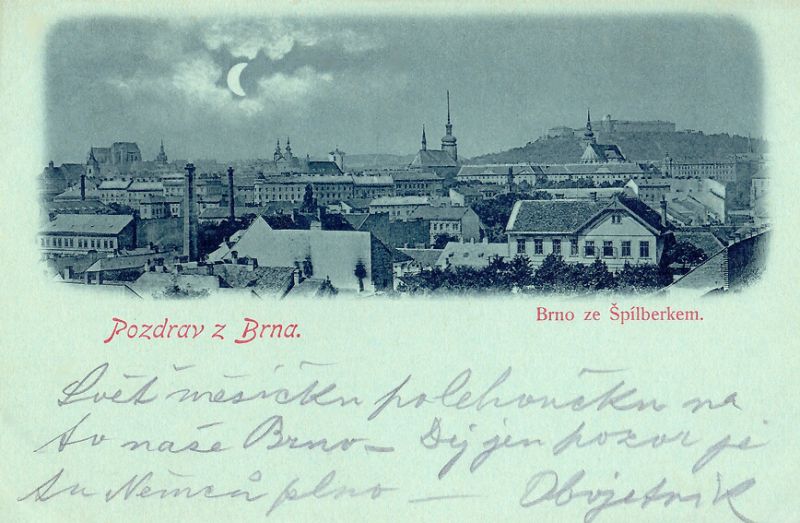 Brno ze Špílberkem.
Pozdrav z Brna.
Svět měsíčku polehoučku na
to naše Brno – Dej jen pozor je
tu Němců plno –